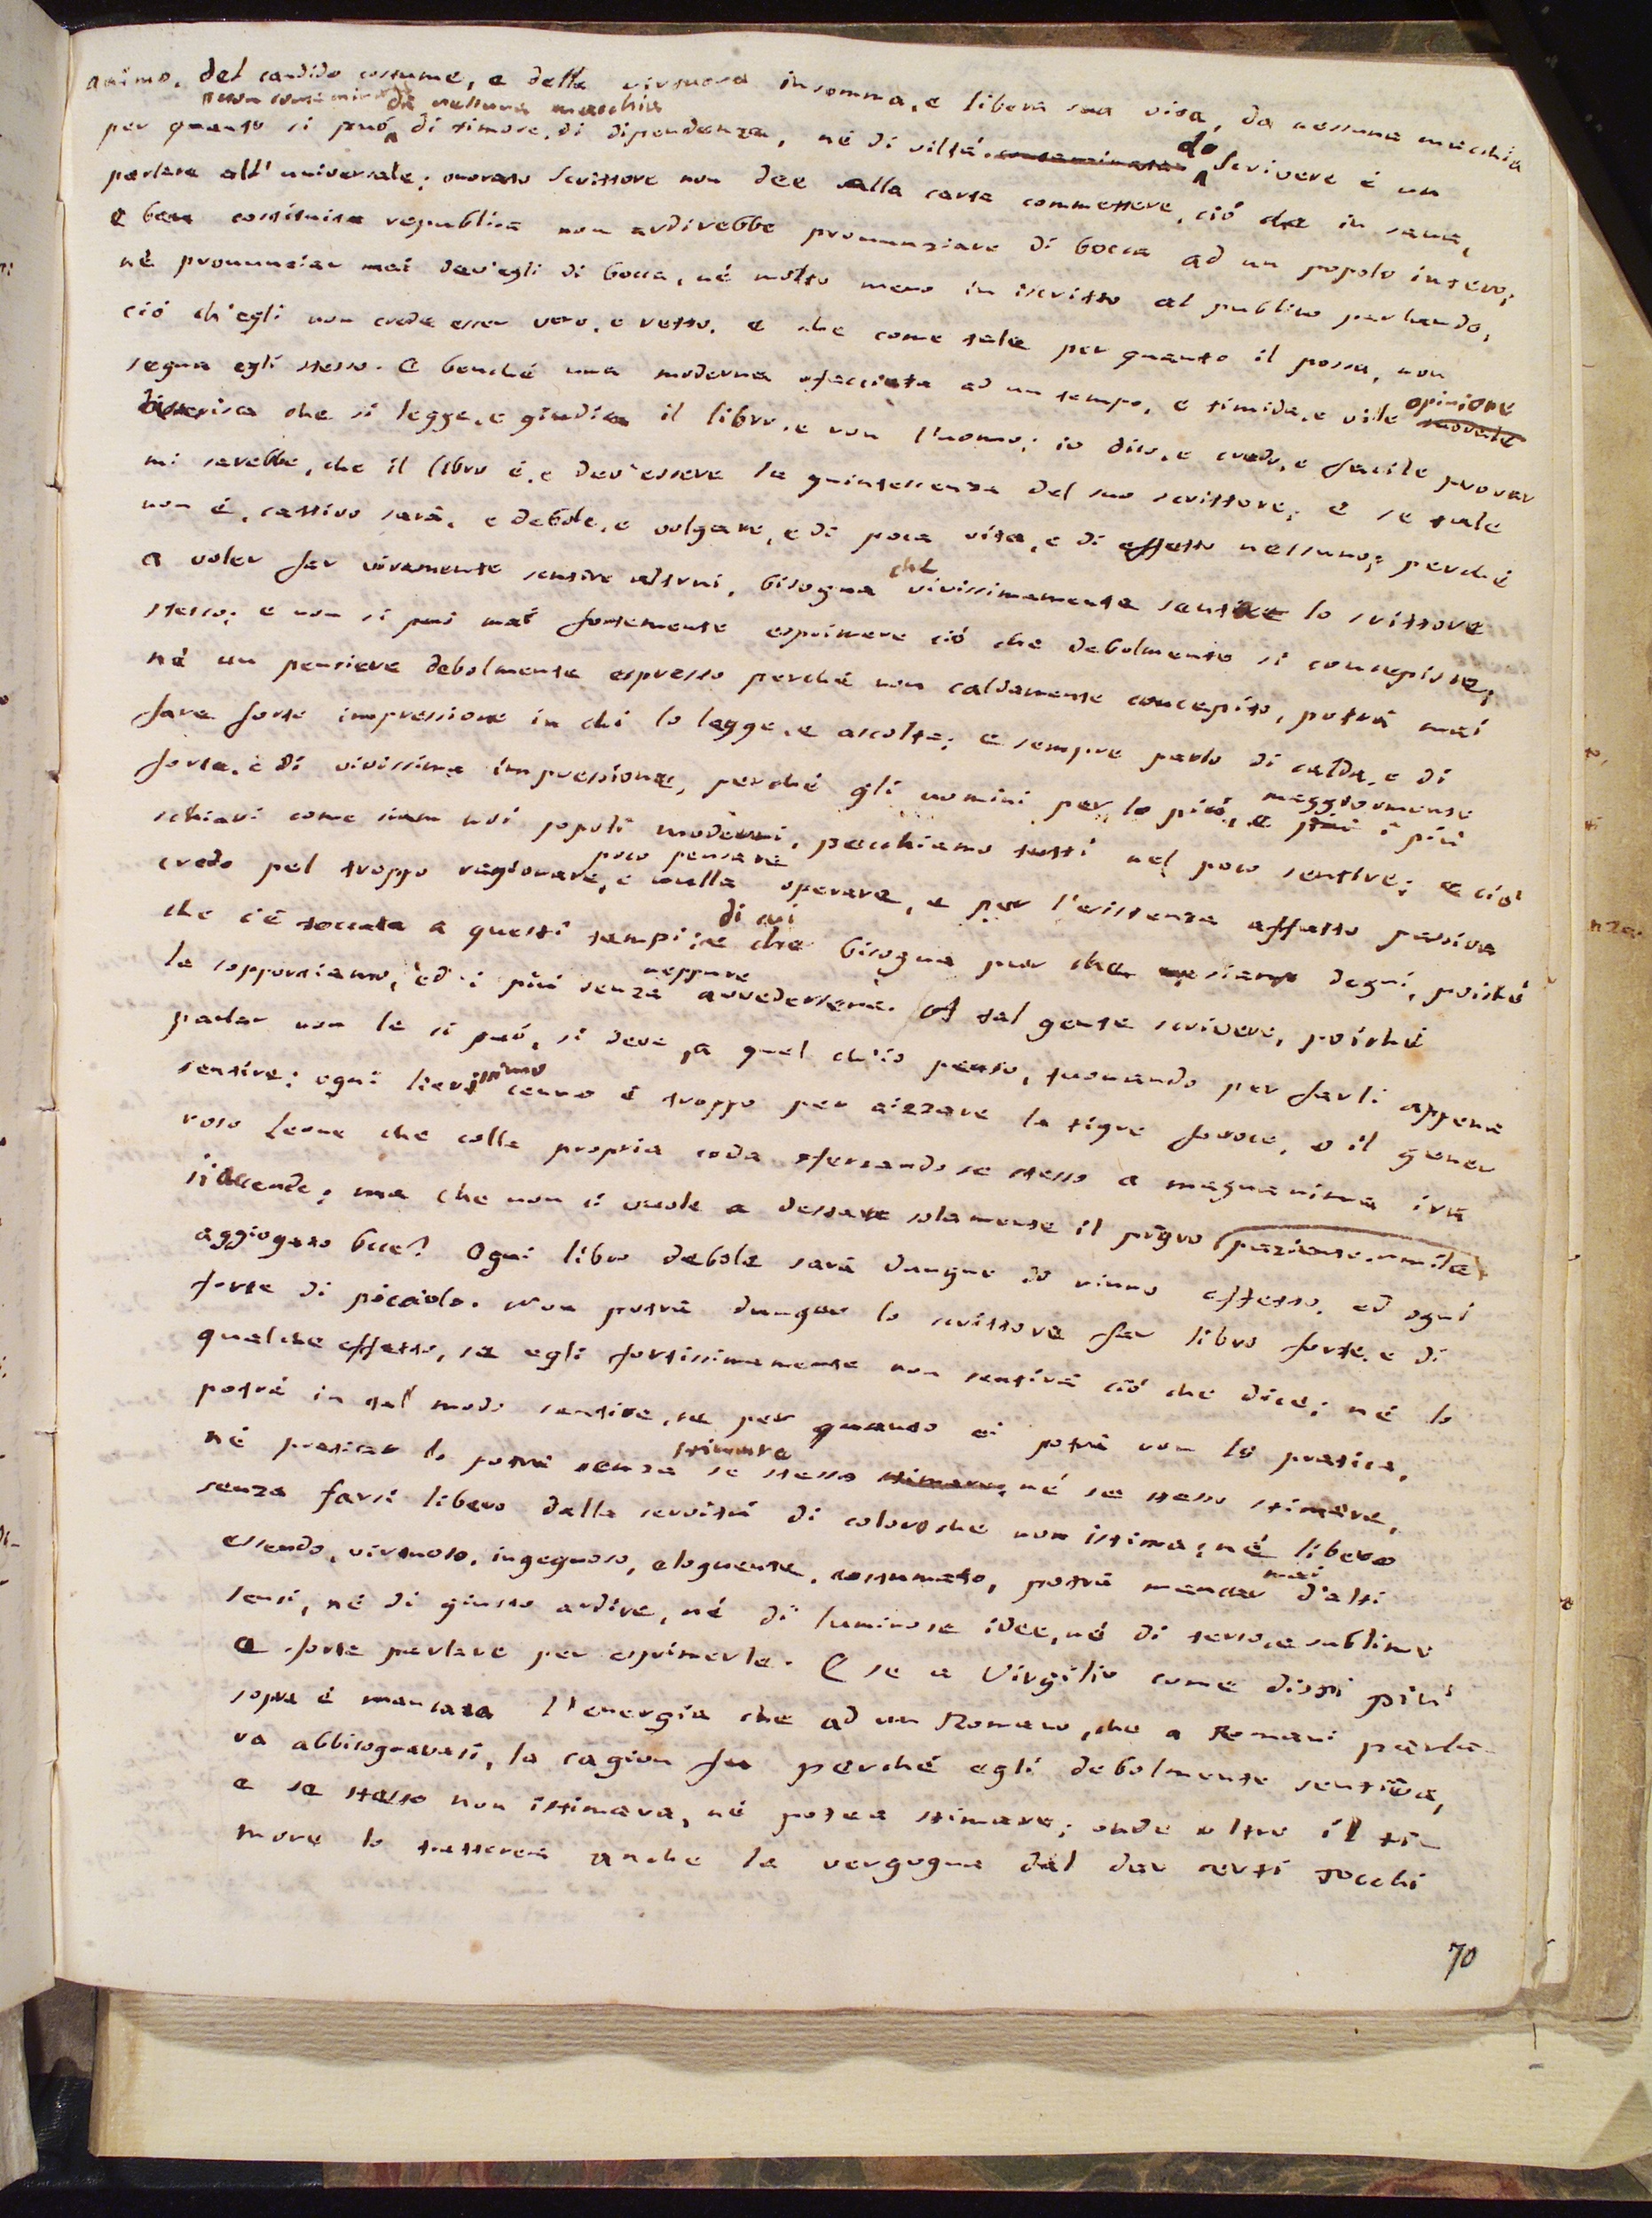 animo, del candido costume, e della virtuosa insomma, e libera sua vita, da nessuna macchia
non contaminata da nessuna macchia
per quanto si può di timore, di dipendenza, né di viltá. contaminata. Lo Scrivere é un
parlare all'universale; onorato Scrittore non dee alla carta commettere, ció che in sana,
e ben costituita republica non ardirebbe pronunziare di bocca ad un popolo intero;
né pronunziar mai dev'egli di bocca, né molto meno in iscritto al publico parlando,
ció ch'egli non crede esser vero, e retto, e che come tale per quanto il possa, non
segua egli stesso. E benché una moderna sfacciata ad un tempo, e timida, e vile opinione
asserisca che si legge, e giudica il libro, e non l'uomo; io dico, e credo, e facile provar
mi sarebbe, che il libro é, e dev'essere la quintessenza del suo scrittore; e se tale
non é, cattivo sará, e debole, e volgare, e di poca vita, e di effetto nessuno; perché
a voler far vivamente sentire altrui, bisogna che vivissimamente senta lo scrittore
stesso; e non si puó mai fortemente esprimere ció che debolmente si concepisce;
né un pensiere debolmente espresso perché non caldamente concepito, potrá mai
fare forte impressione in chi lo legge, e ascolta; e sempre parlo di calda, e di
forte, e di vivissima impressione, perché gli uomini per lo piú, e maggiormente i piú
schiavi come siam noi popoli moderni, pecchiamo tutti nel poco sentire; e ció
poco pensare
credo pel troppo ragionare, e nulla operare, e per l'esistenza affatto passiva
che c'é toccata a questi tempi; e di cui bisogna pur che ne siamo degni, poiché
la sopportiamo, ed i piú senza neppure avvedersene. A tal gente scrivere, poiché
parlar non le si puó, si deve, a quel ch'io penso, tuonando per farli appena
sentire; ogni lievissimo cenno é troppo per aizzare la tigre feroce, o il gener
roso Leone che colla propria coda sferzando se stesso a magnanima ira
s'accende; ma che non ci vuole a destare solamente il pigro (paziente, umile)
aggiogato bue? Ogni libro debole sará dunque di niuno effetto, ed ogni
forte di picciolo. Non potrá dunque lo scrittore far libro forte, e di
qualche effetto, se egli fortissimamente non sentirá ció che dice; né lo
potrá in tal modo sentire, se per quanto ei potrá non lo pratica,
né praticar lo potrá senza stimare se stesso stimare, né se stesso stimare,
senza farsi libero dalla servitú di coloro che non istima; né libero
essendo, virtuoso, ingegnoso, eloquente, costumato, potrá mancar mai d'alti
sensi, né di giusto ardire, né di luminose idee, né di terso, e sublime
e forte parlare per esprimerle. E se a Virgilio come dissi piú
sopra é mancata l'energia che ad un Romano, che a Romani parla-
va abbisognavasi, la cagion fu perché egli debolmente sentiva,
e se stesso non istimava, né potea stimare; onde oltre il ti-
more lo tratteneva anche la vergogna dal dar certi tocchi
70